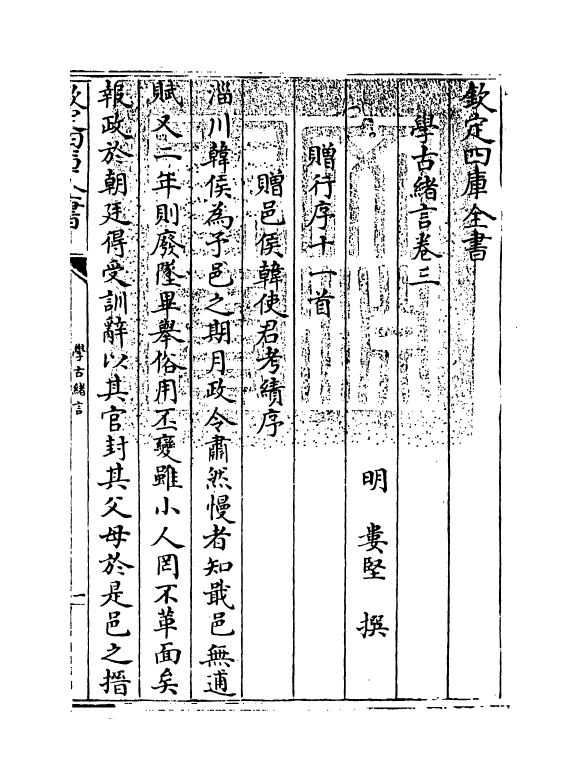 欽定四庫全書
學古緒言卷三
明 婁堅 撰
贈行序十一首
贈邑侯韓使君考績序
淄川韓侯為予邑之期月政令肅然慢者知戢邑無逋
賦又二年則廢墜畢舉俗用丕變雖小人罔不革面矣
報政於朝廷得受訓辭以其官封其父母於是邑之搢
欽定四庫全書
學古緒言
一